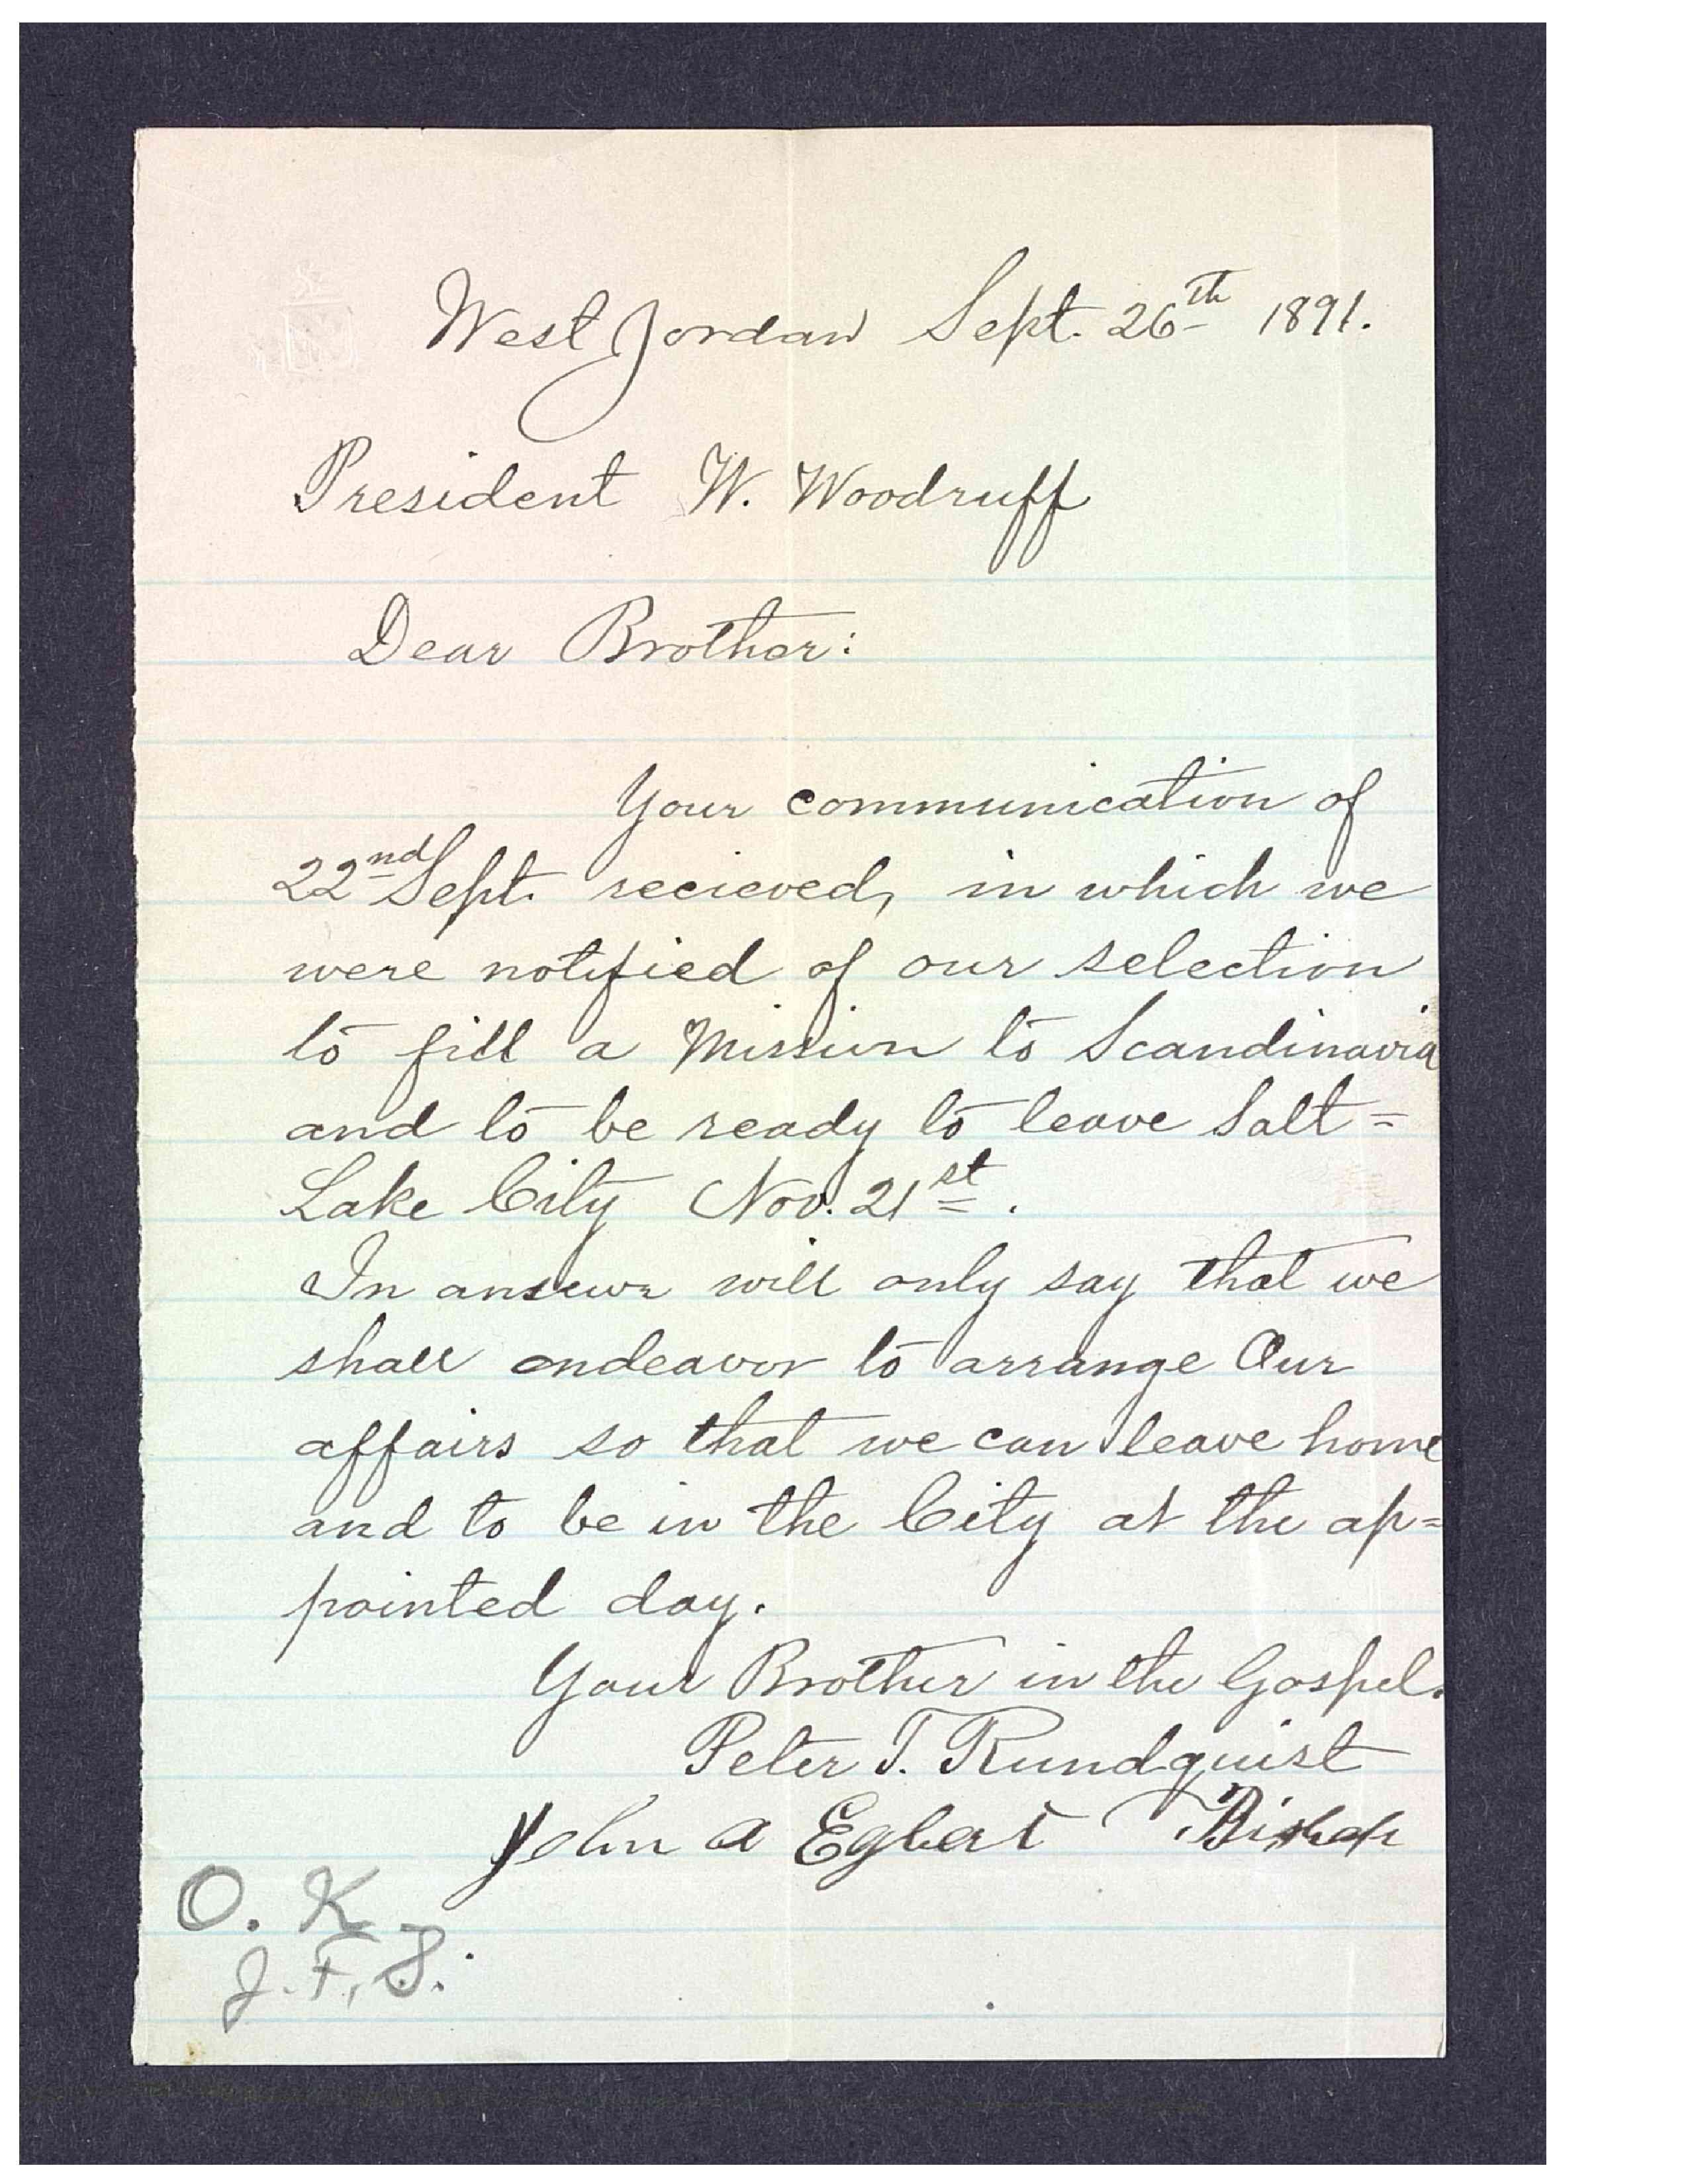 West Jordan Sept. 26th 1891.
President W. Woodruff
Dear Brother:
Your communication of
22nd Sept. recieved, in which we
were notified of our selection
to fill a Mission to Scandinavia
and to be ready to leave Salt=
Lake City Nov. 21st.
In answer will only say that we
shall endeavor to arrange Our
affairs so that we can leave home
and to be in the City at the ap=
pointed day.
Your Brother in the Gospel.
Peter T. Rundquist
John A Egbert Bishop
O. K
J. F. S.